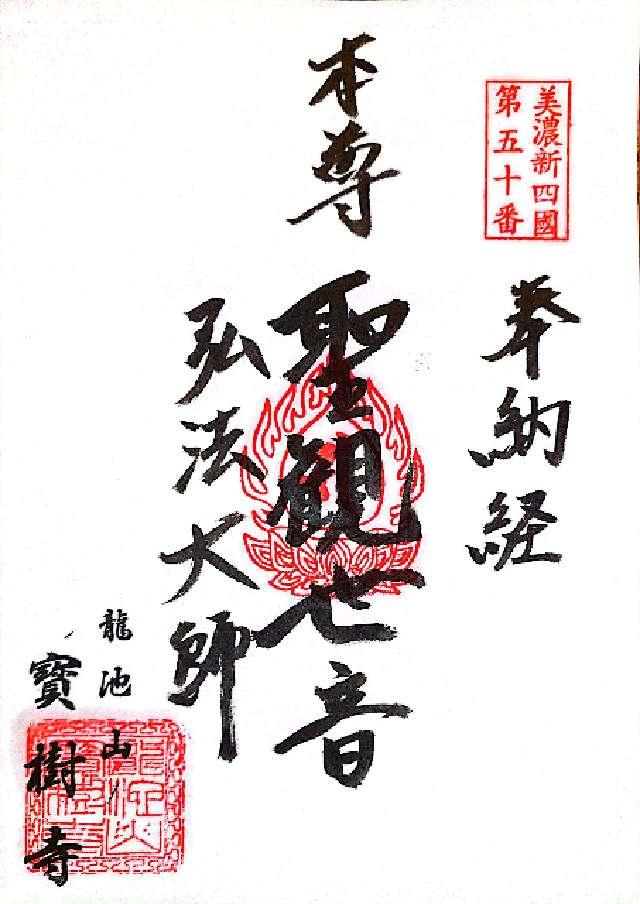 美濃新四國
第五十番
奉納経
本尊
聖観世音
弘法大師
龍池山
寳樹寺